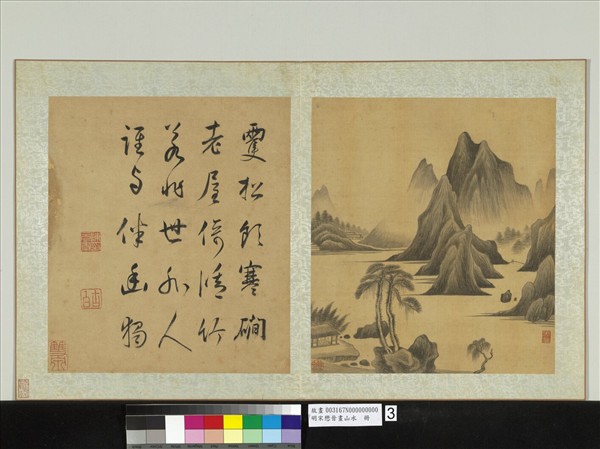 雙松寒磵
老屋倚脩竹
若非世外人
誰與伴幽獨
故畫 003167N000000000
明宋懋晉畫山水 冊
3